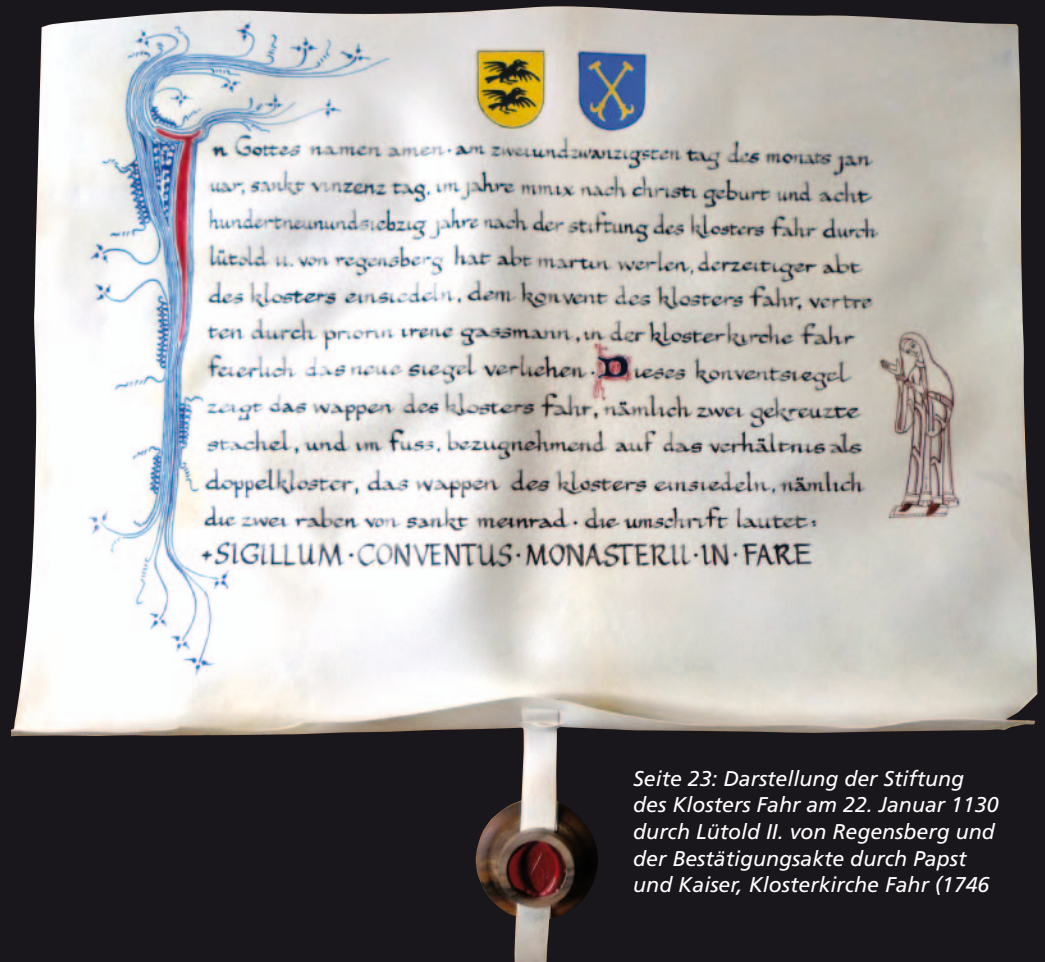 In Gottes namen amen · am zweiundzwanzigsten tag des monats jan
uar, sankt vinzenz tag, im jahre mmix nach christi geburt und acht
hundertneunundsiebzig jahre nach der stiftung des klosters fahr durch
lütold ii. von regensberg hat abt martin werlen, derzeitiger abt
des klosters einsiedeln, dem konvent des klosters fahr, vertre
ten durch priorin irene gassmann, in der klosterkirche fahr
feierlich das neue siegel verliehen · Dieses konventsiegel
zeigt das wappen des klosters fahr, nämlich zwei gekreuzte
stachel, und im fuss, bezugnehmend auf das verhältnis als
doppelkloster, das wappen des klosters einsiedeln, nämlich
die zwei raben von sankt meinrad · die umschrift lautet:
+SIGILLUM · CONVENTUS · MONASTERII · IN · FARE
Seite 23: Darstellung der Stiftung
des Klosters Fahr am 22. Januar 1130
durch Lütold II. von Regensberg und
der Bestätigungsakte durch Papst
und Kaiser, Klosterkirche Fahr (1746